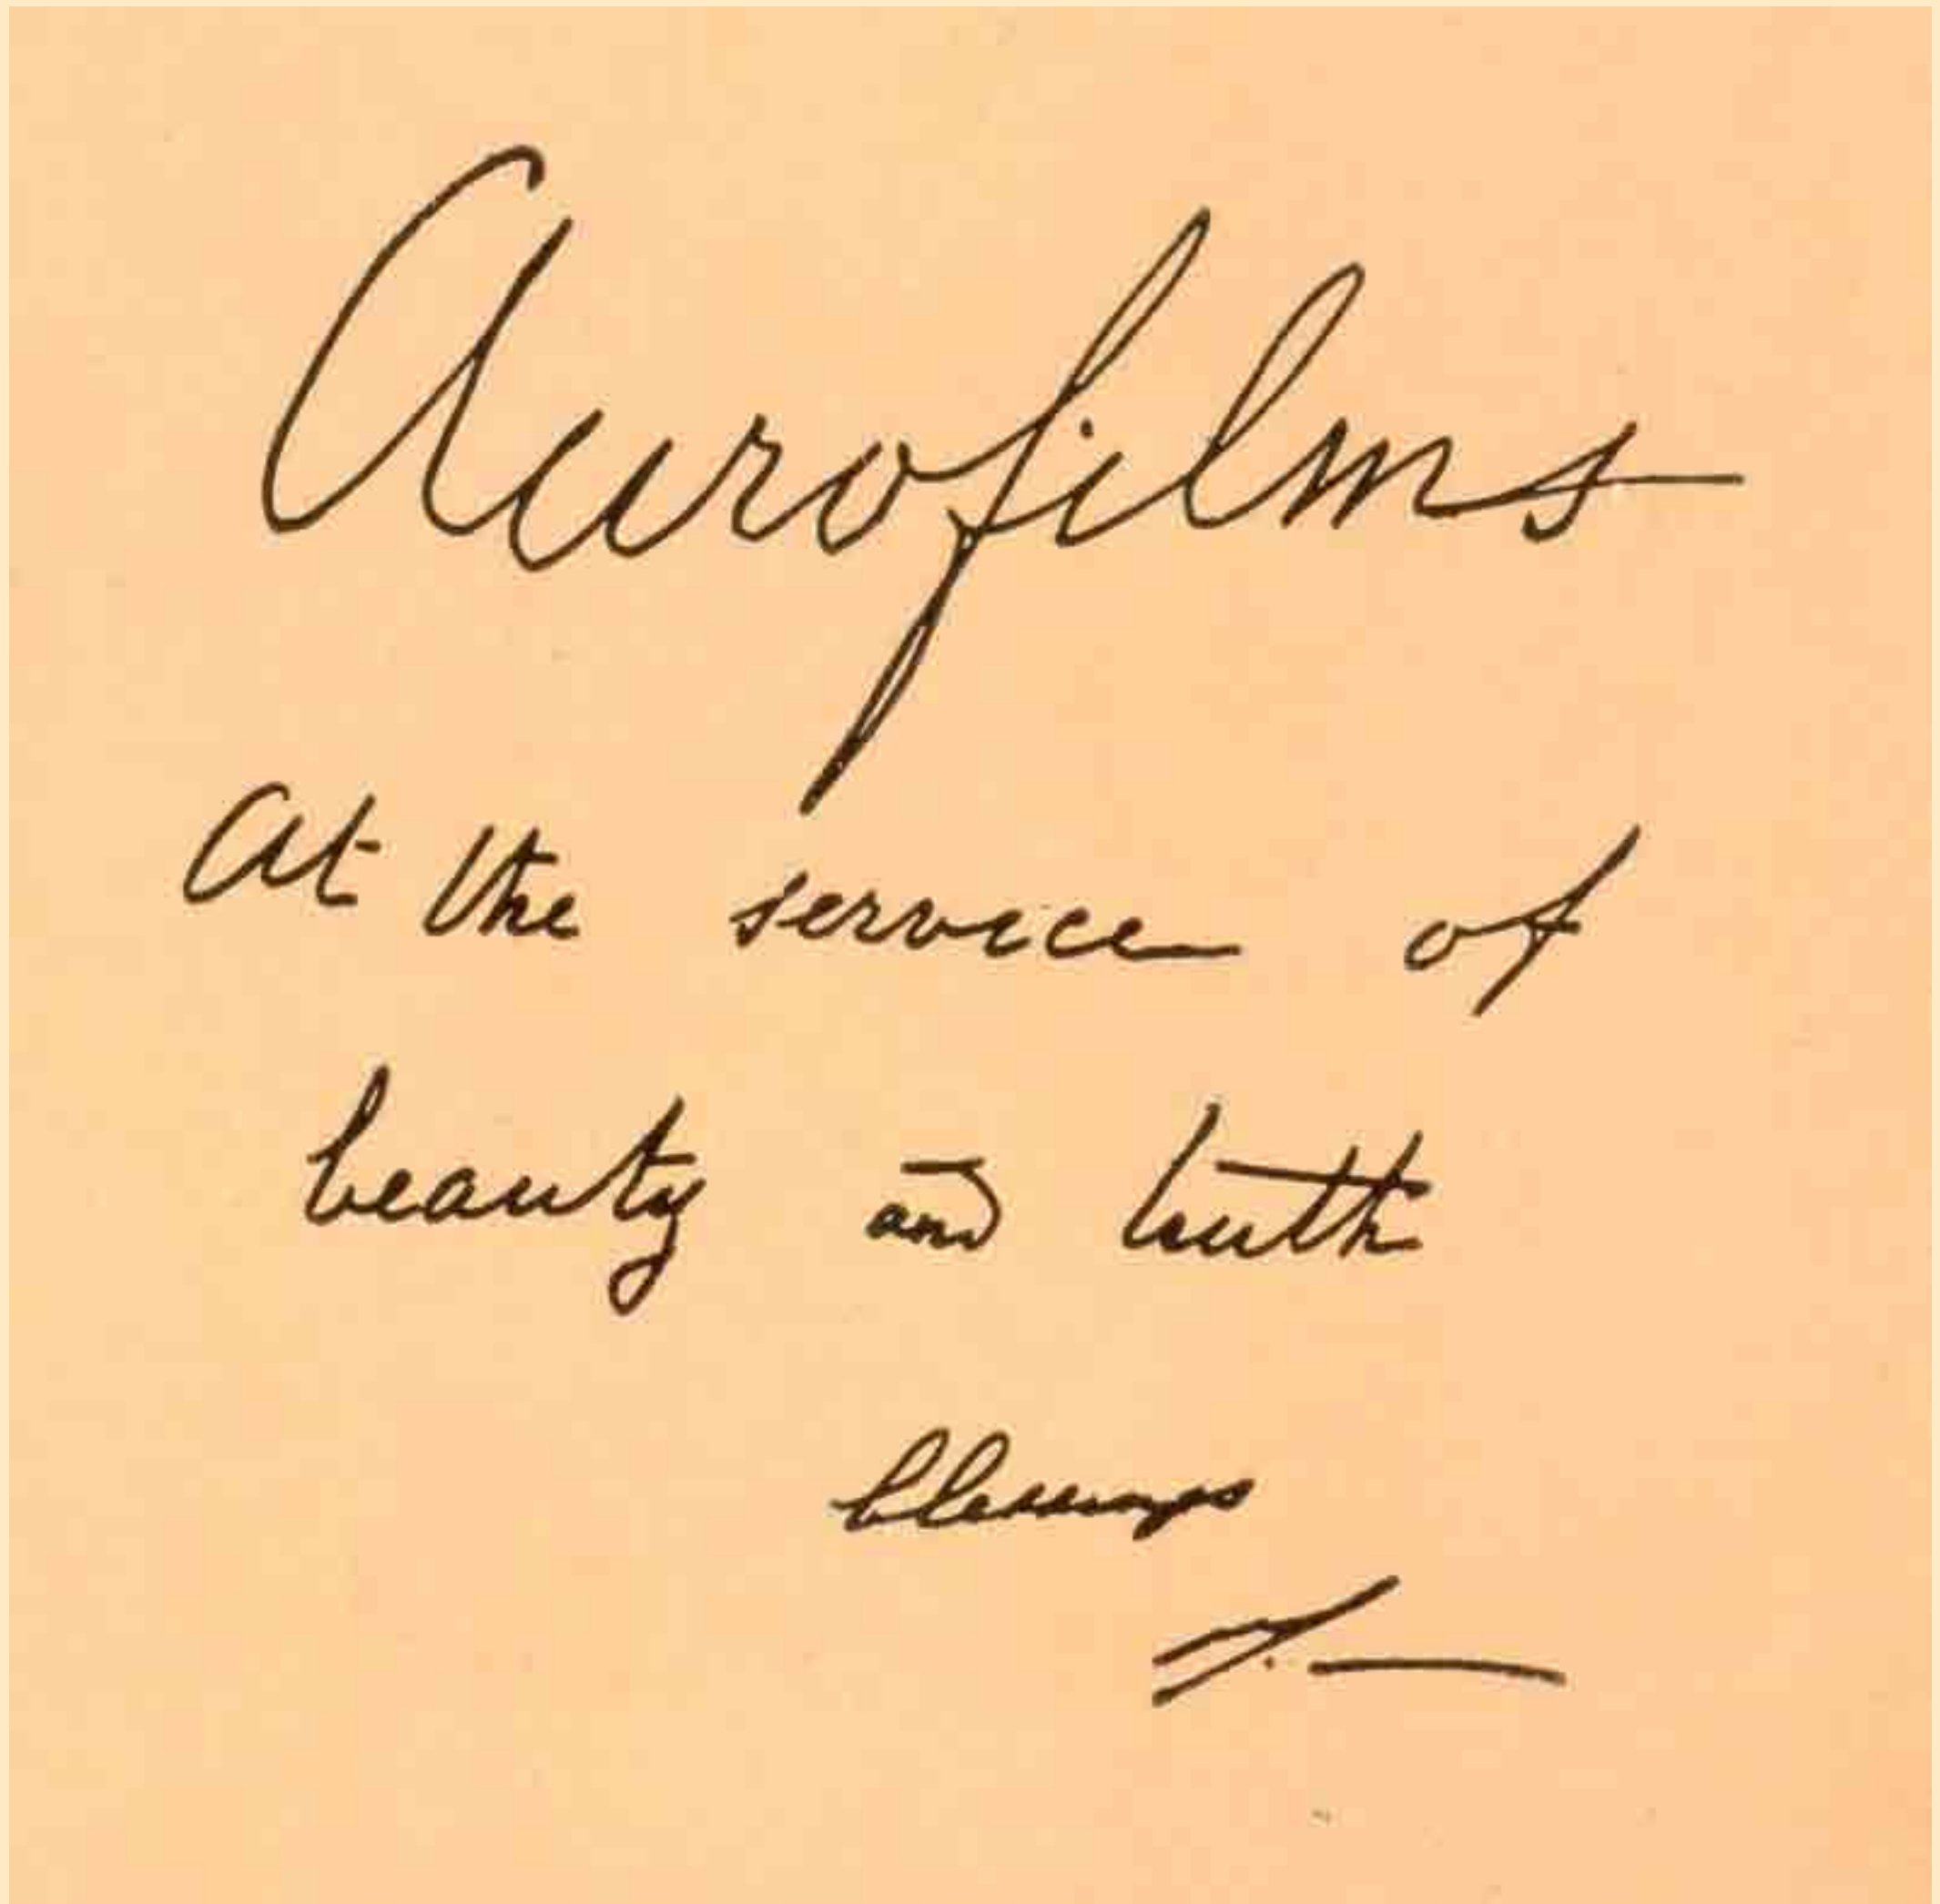 Aurofilms
at the service of
beauty and truth
blessings